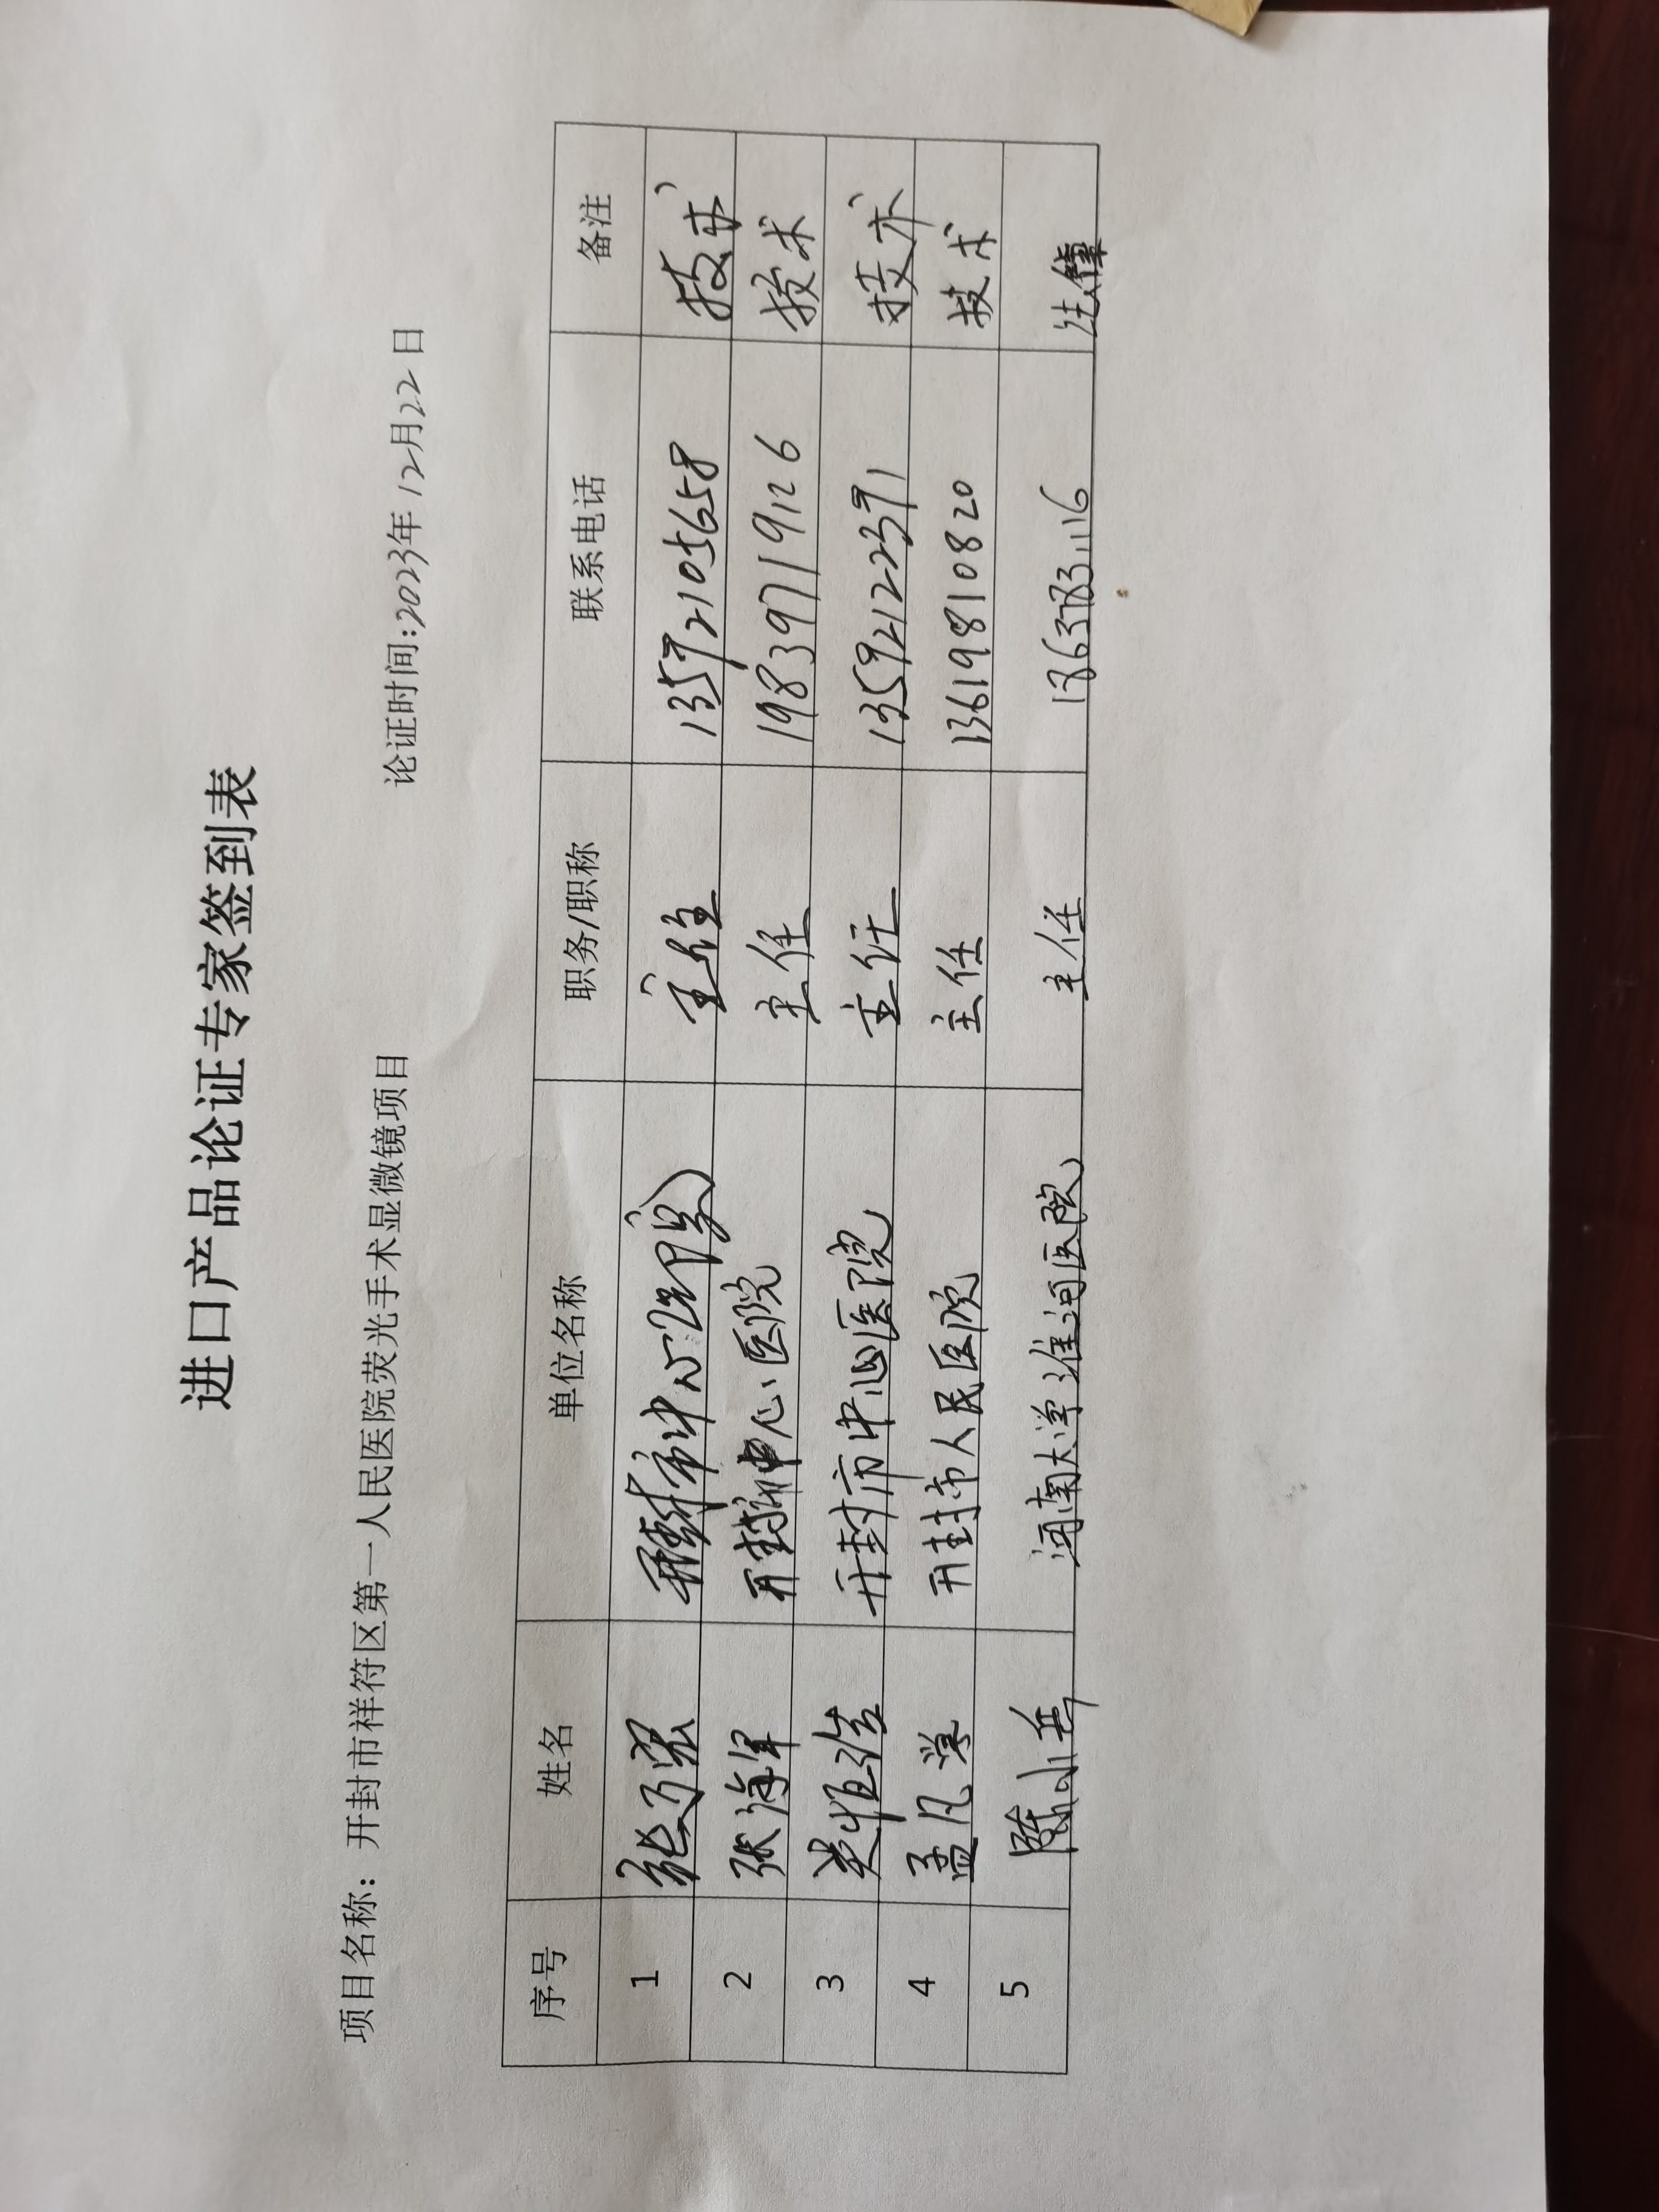 进口产品论证专家签到表
项目名称：开封市祥符区第一人民医院荧光手术显微镜项目 论证时间:2023年12月22日
序号 姓名 单位名称 职务/职称 联系电话 备注
1 开封市中心医院 主任 13592105658 技术
2 张海军 开封市中心医院 主任 19839719126 技术
3 开封市中心医院 主任 13592122391 技术
4 孟凡学 开封市人民医院 主任 13619810820 技术
5 陈小兵 河南大学淮河医院 主任 法律